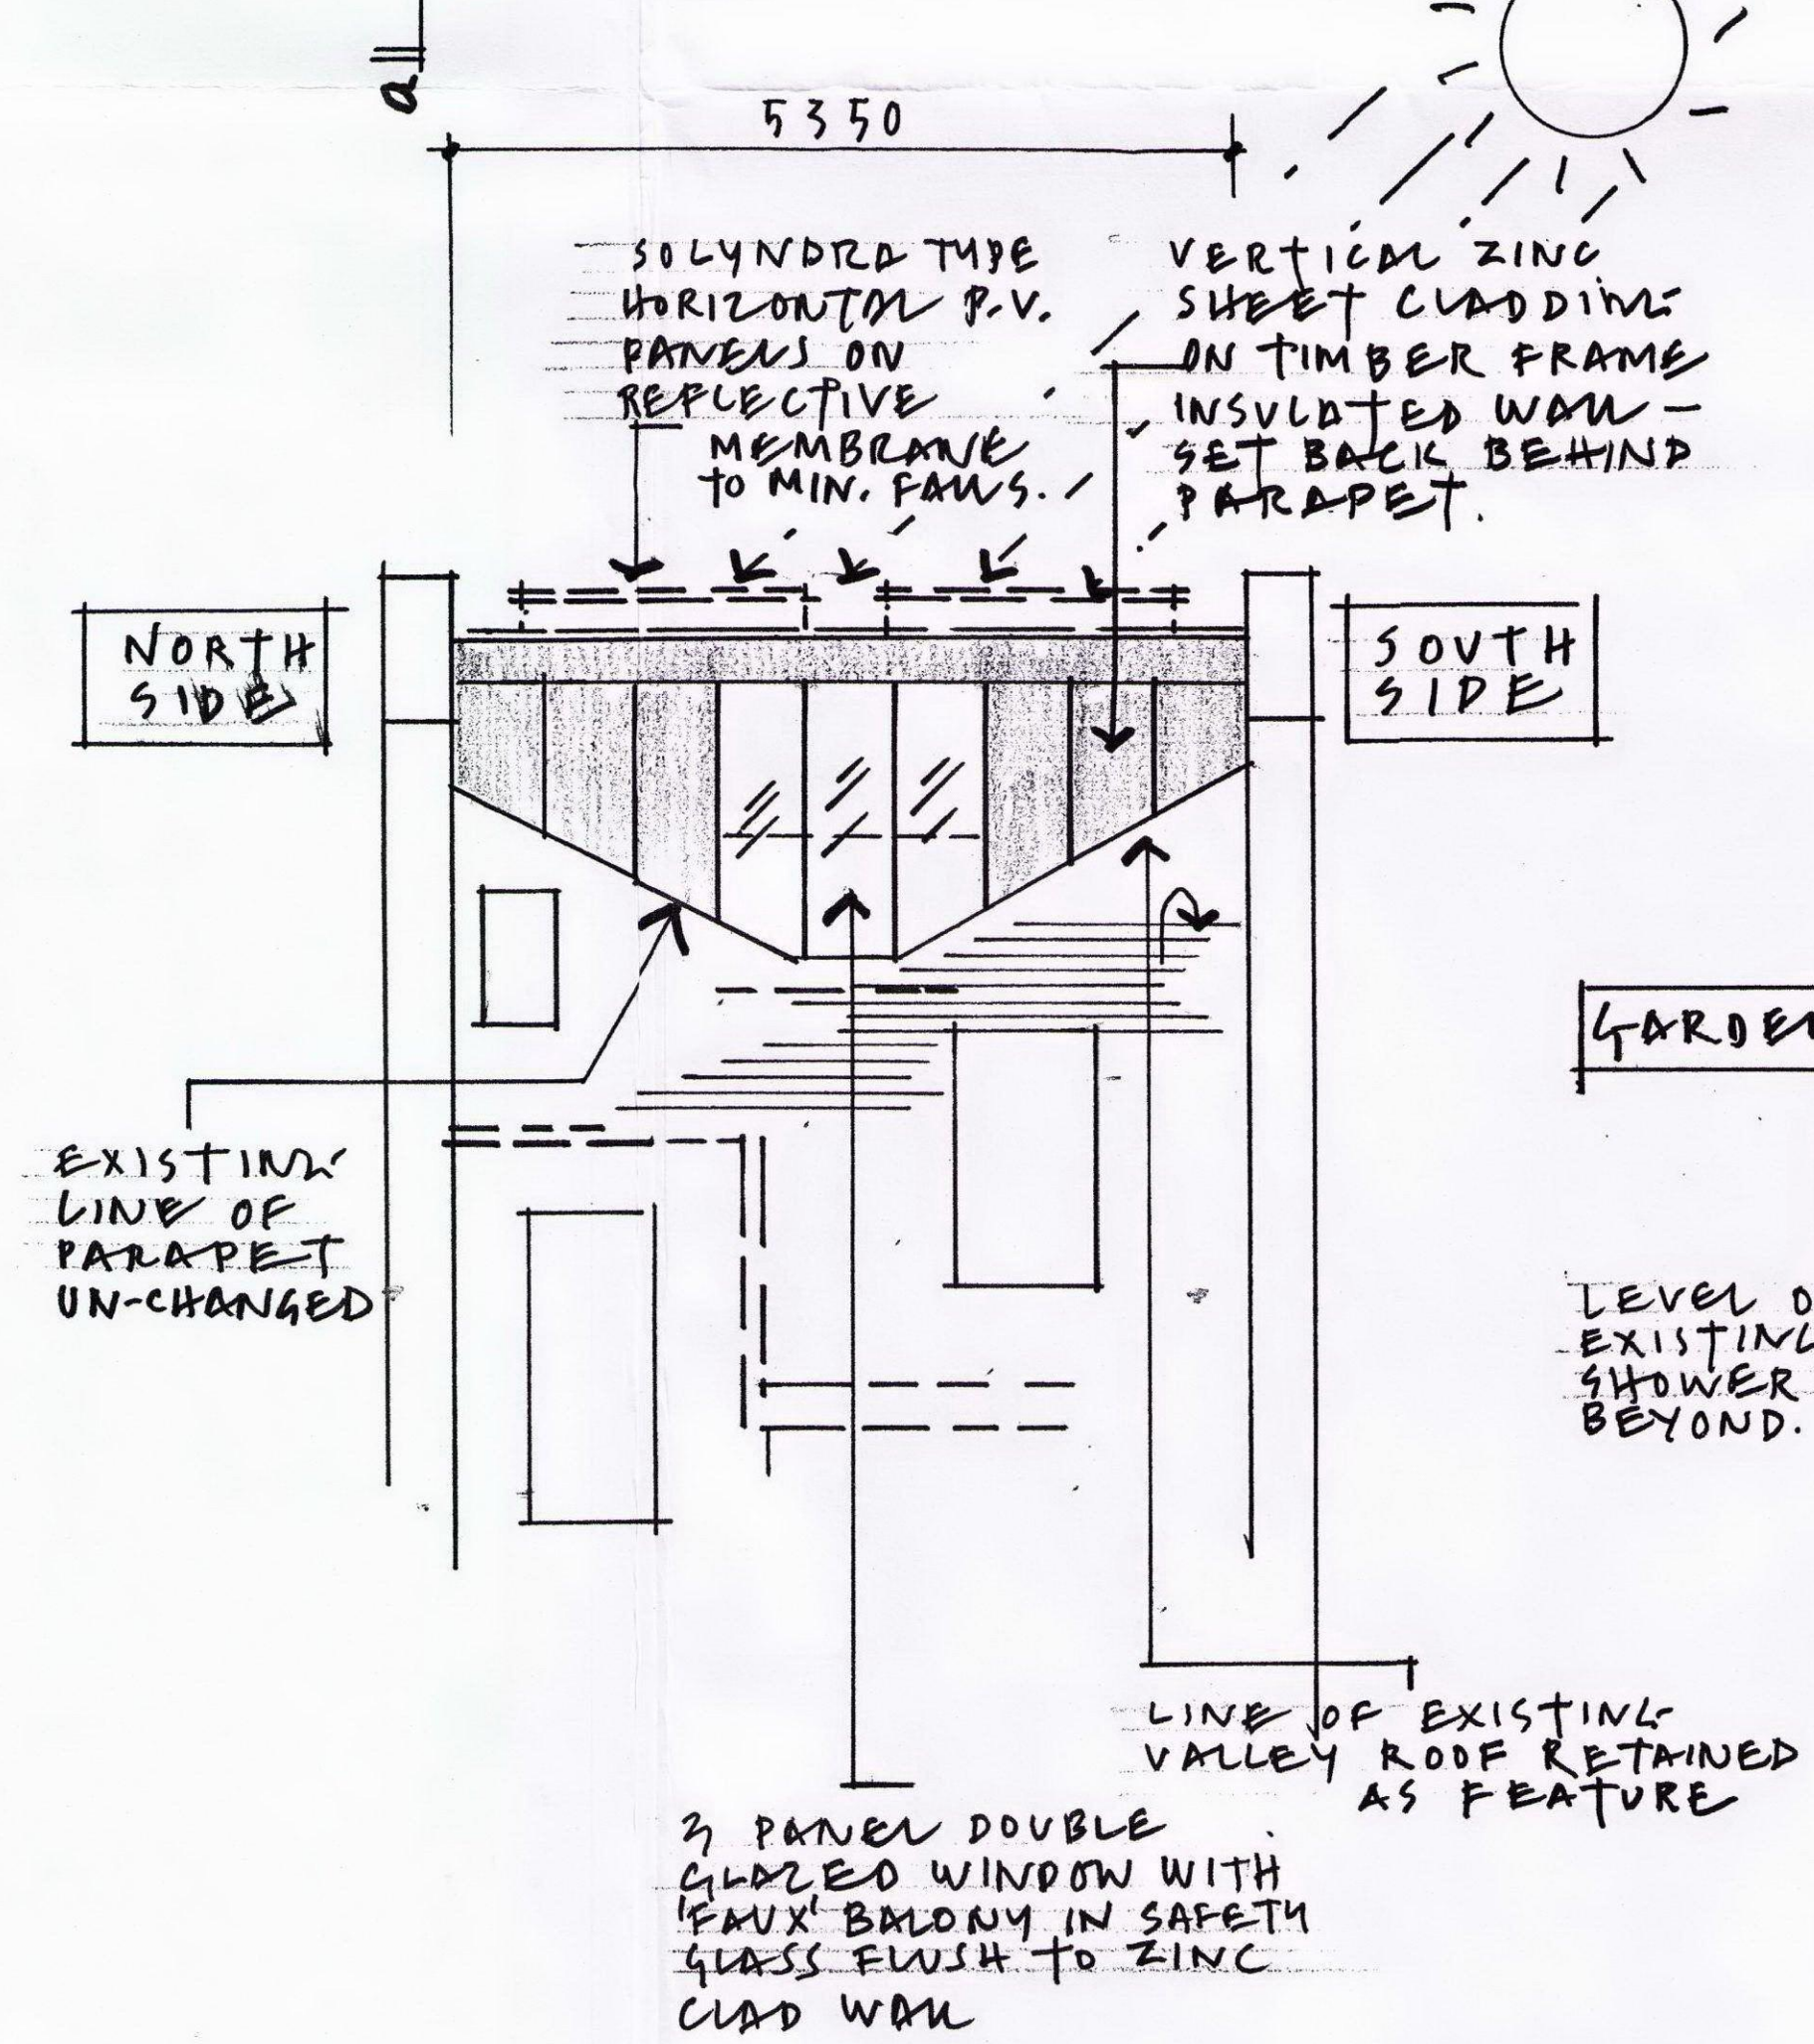 a
5350
SOLYNDRA TYPE
HORIZONTAL P.V.
PANELS ON
REFLECTIVE
MEMBRANE
TO MIN. FALLS.
VERTICAL ZINC
SHEET CLADDING
ON TIMBER FRAME
INSULATED WALL -
SET BACK BEHIND
PARAPET.
NORTH
SIDE
SOUTH
SIDE
GARDEN
EXISTING
LINE OF
PARAPET
UN-CHANGED
LEVEL O
EXISTING
SHOWER
BEYOND.
LINE OF EXISTING
VALLEY ROOF RETAINED
AS FEATURE
3 PANEL DOUBLE
GLAZED WINDOW WITH
'FAUX' BALONY IN SAFETY
GLASS FLUSH TO ZINC
CLAD WALL